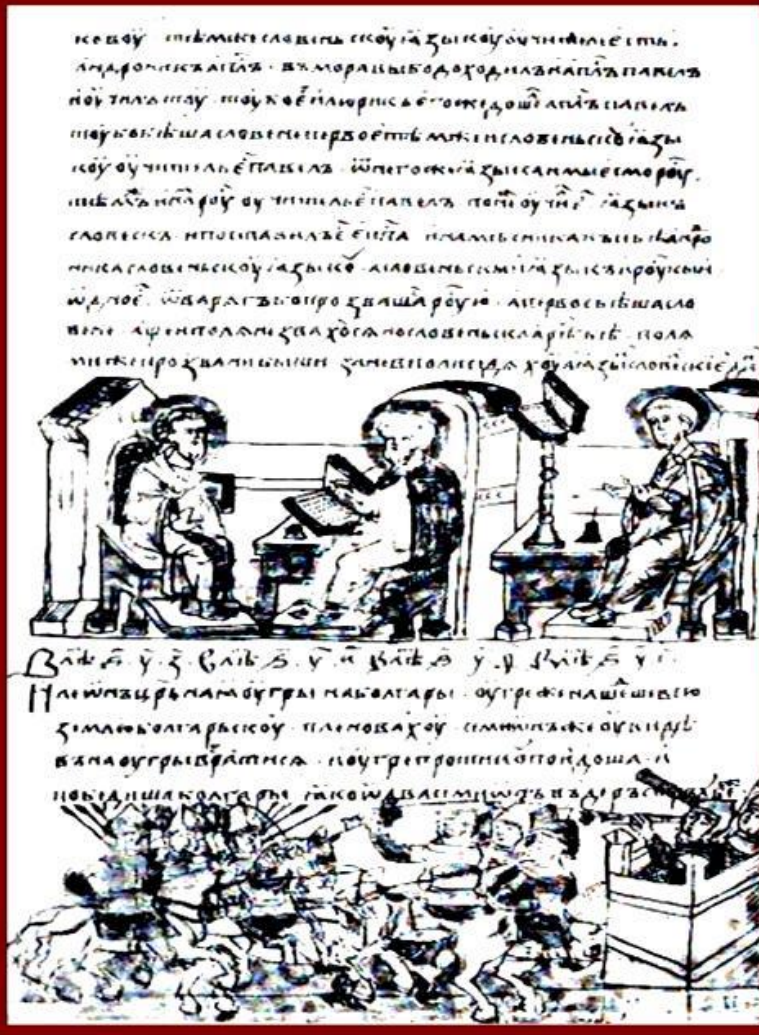 ковоу тѣмже словеньскоу языкоу оучитель есть.
андроникъ аплъ. въ моравы бо доходилъ и аплъ павелъ
и оучилъ тоу. тоу бо е илюрикъ егоже дошелъ аплъ павелъ
тоу бо бѣша словене первое тѣмже и словеньскоу язы
коу оучитель е павелъ. ѿ негоже языка и мы есмо роу.
тѣм и нам роу оучитель е павелъ понеж оучил е языкъ
словескъ. и поставилъ е еппа и намѣсника къ себѣ андро
ника словеньскоу языкоу. а словеньскыи языкъ и роукыи
ѡдно е. ѿ варягъ бо прозвашася роую. а первое бѣша сло
вене. аще и поляне звахоуся но словеньскаа рѣч бѣ. поля
ми же прозвани быши зане в поли сѣдяхоу
В лѣ ҂ѕ у з В лѣ ҂ѕ у и В лѣ ҂ѕ у ѳ В лѣ ҂ѕ у і
И леѡнъ црь ная оугры на болгары. оугре же нашеше всю
землю болгарьскоу. пленовахоу. симиѡнъ же оувидѣ
въ на оугры вратися. и оугре противоу поидоша. и
победиша болгары яко ѡдва симиѡнъ въ деръстръ